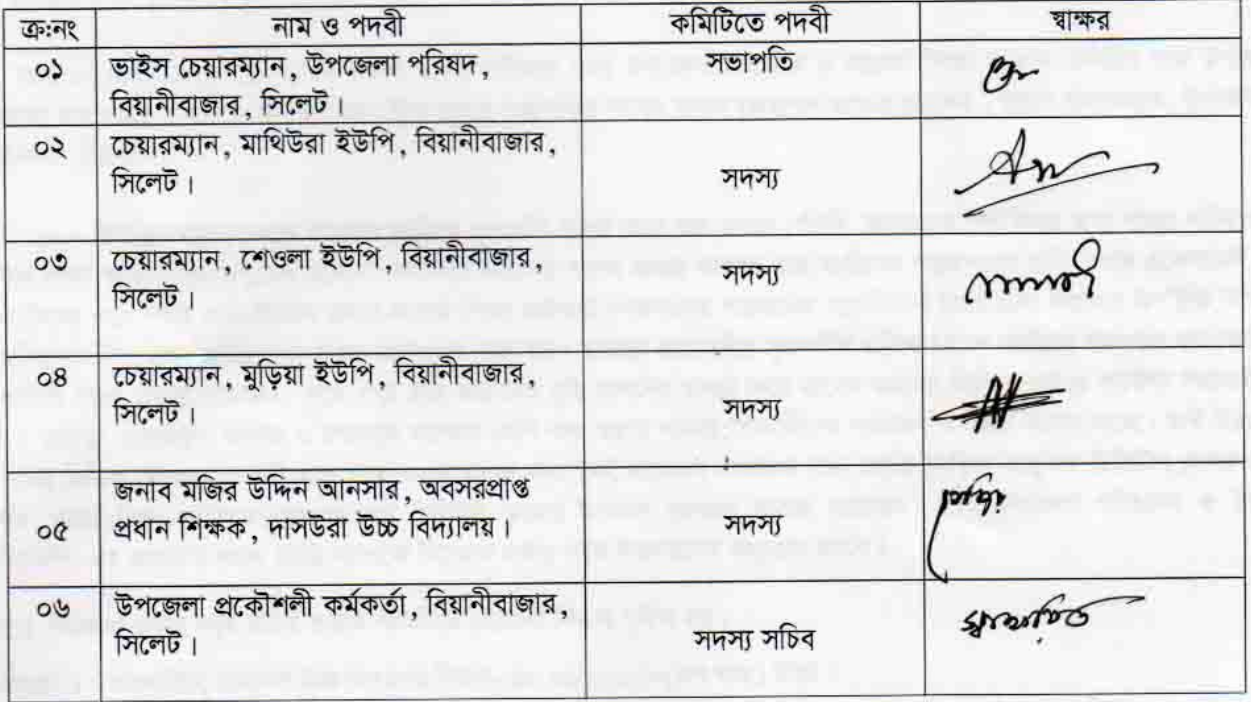 ক্রঃনং নাম ও পদবী কমিটিতে পদবী স্বাক্ষর
০১ ভাইস চেয়ারম্যান, উপজেলা পরিষদ, সভাপতি
বিয়ানীবাজার, সিলেট।
০২ চেয়ারম্যান, মাথিউরা ইউপি, বিয়ানীবাজার,
সিলেট। সদস্য
০৩ চেয়ারম্যান, শেওলা ইউপি, বিয়ানীবাজার,
সিলেট। সদস্য
০৪ চেয়ারম্যান, মুড়িয়া ইউপি, বিয়ানীবাজার,
সিলেট। সদস্য
জনাব মজির উদ্দিন আনসার, অবসরপ্রাপ্ত
০৫ প্রধান শিক্ষক, দাসউরা উচ্চ বিদ্যালয়। সদস্য
০৬ উপজেলা প্রকৌশলী কর্মকর্তা, বিয়ানীবাজার, স্বাক্ষরিত
সিলেট। সদস্য সচিব